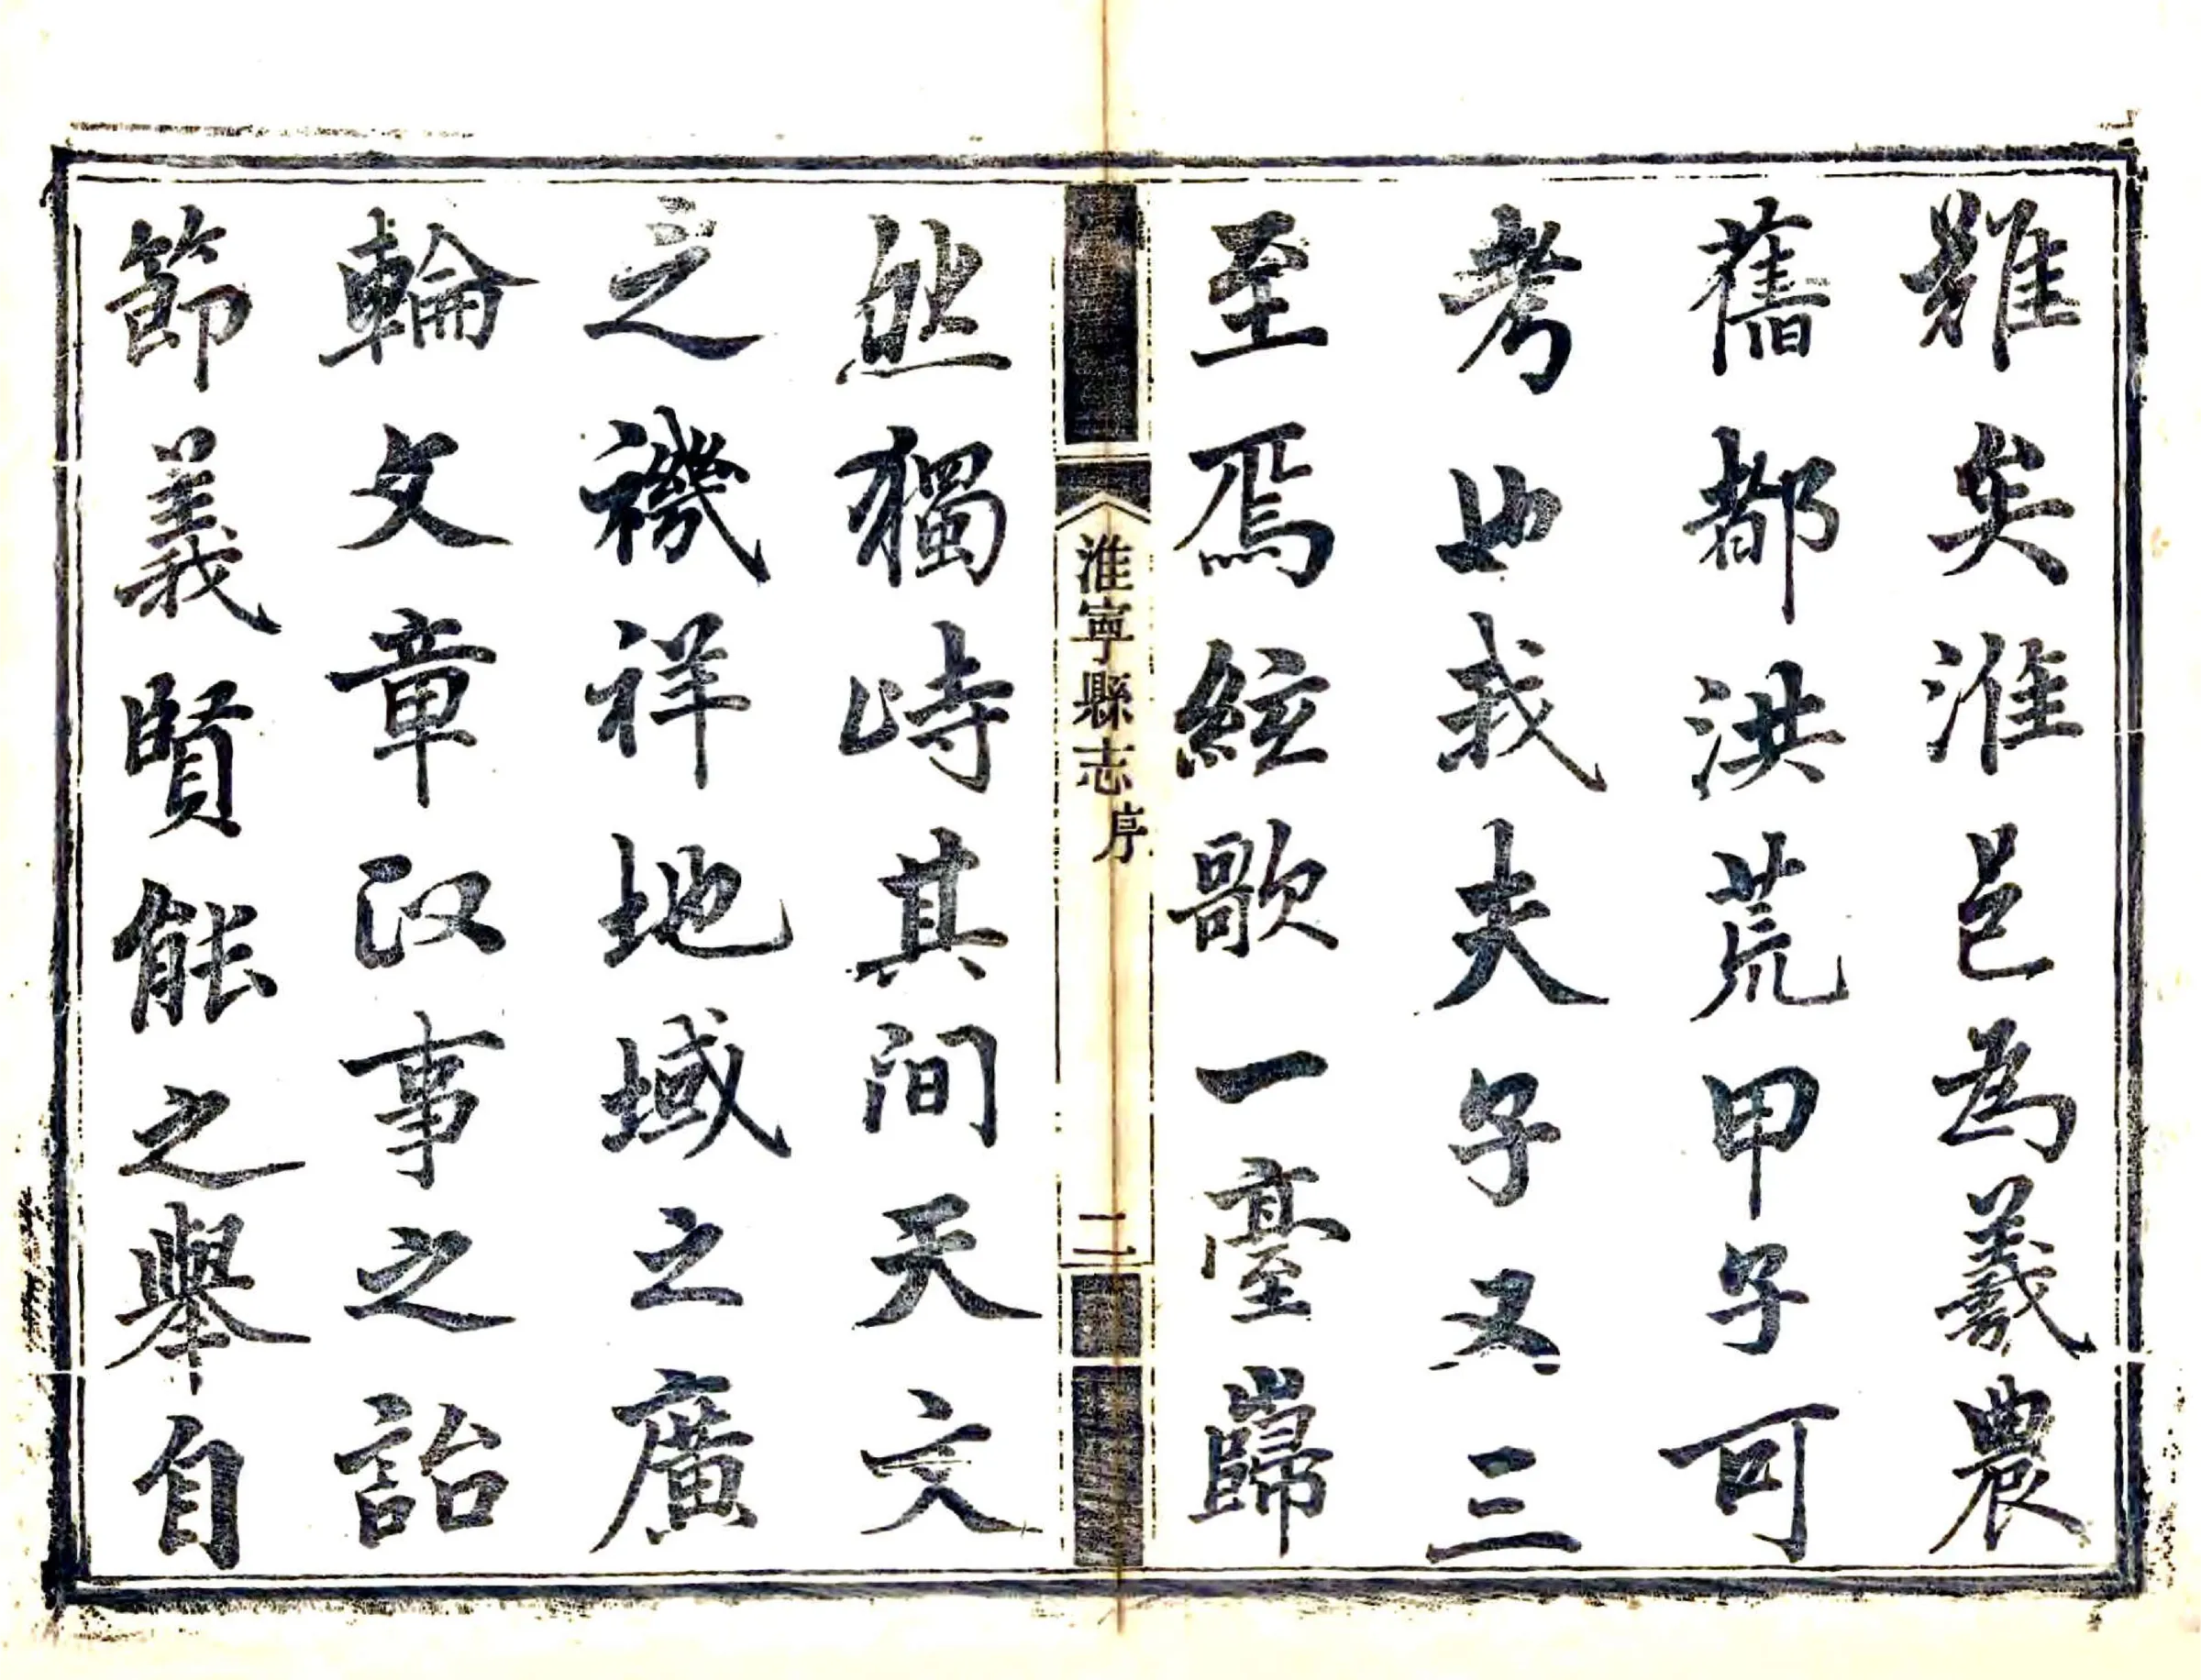 難矣淮邑為羲農
舊都洪荒甲子可
考也我夫子又三
至焉絃歌一臺巋
淮寧縣志 序 二
然獨峙其間天文
之禨祥地域之廣
輪文章政事之詒
節義賢能之舉自